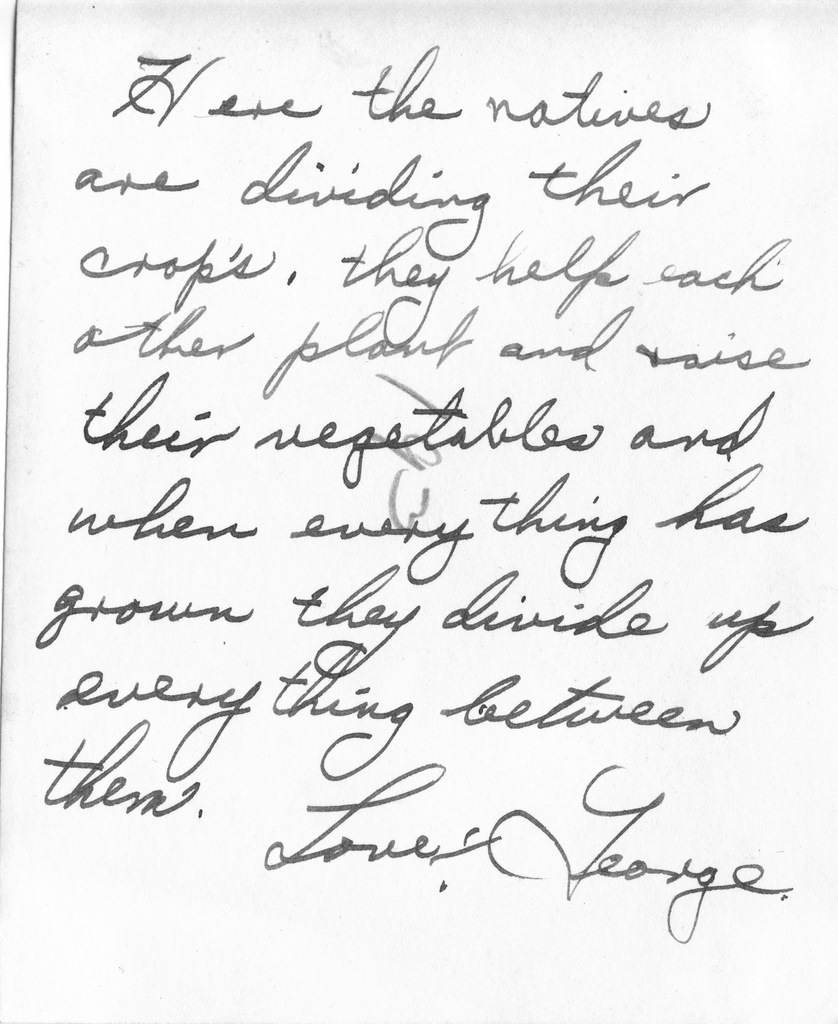 Here the natives
are dividing their
crop's. they help each
other plant and raise
their vegetables and
when everything has
grown they divide up
everything between
them.
Love! George.